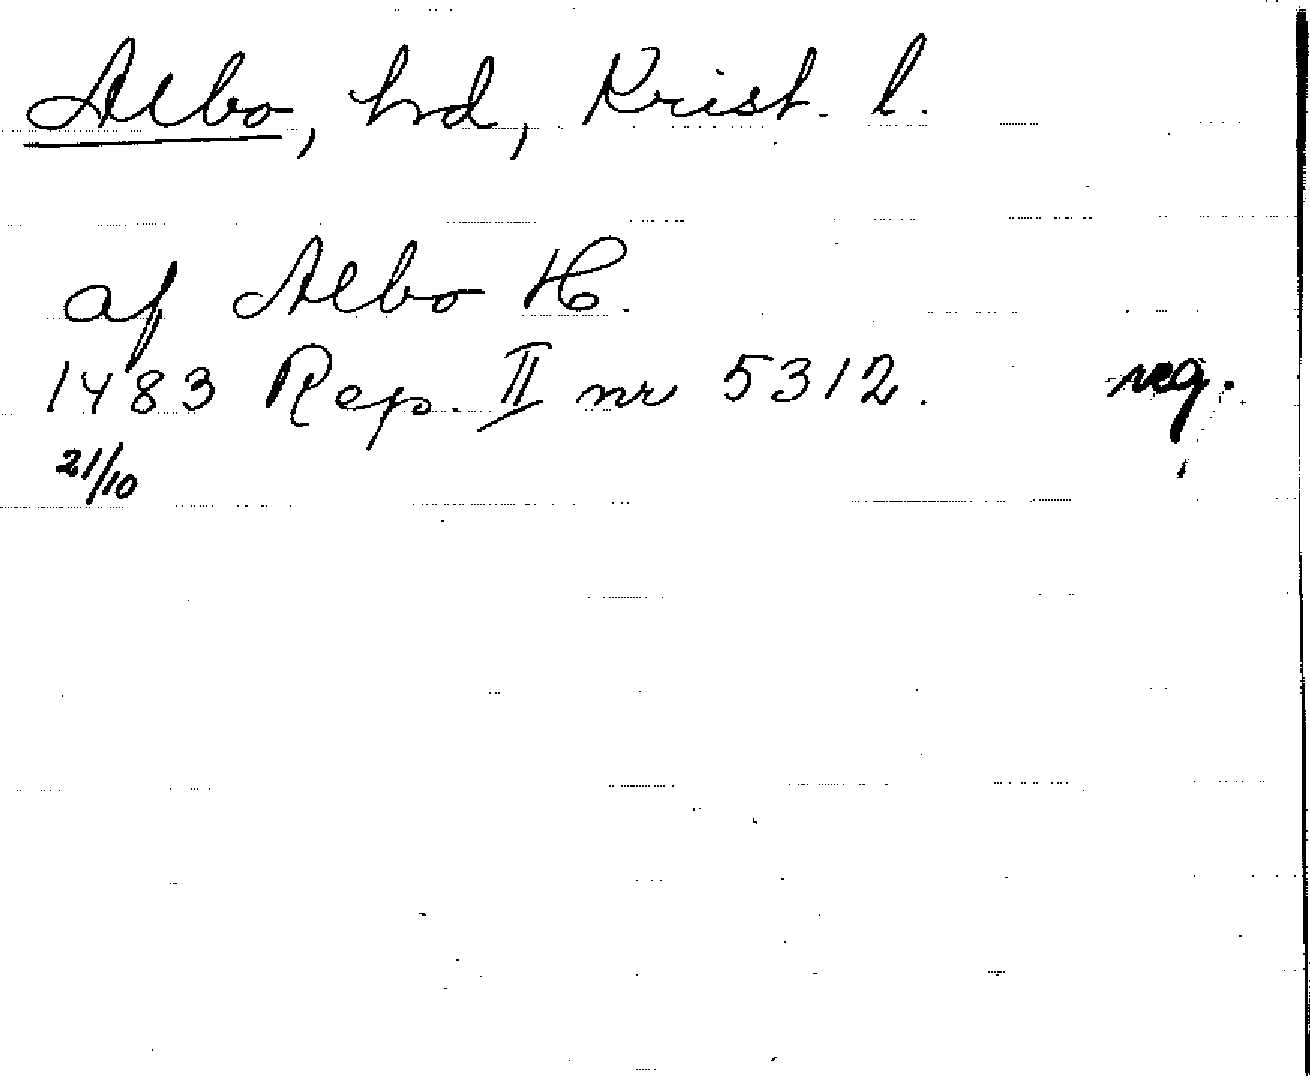 Albo, hd, Krist. l.
af Albo H.
1483 Rep. II nr 5312. reg.
21/10